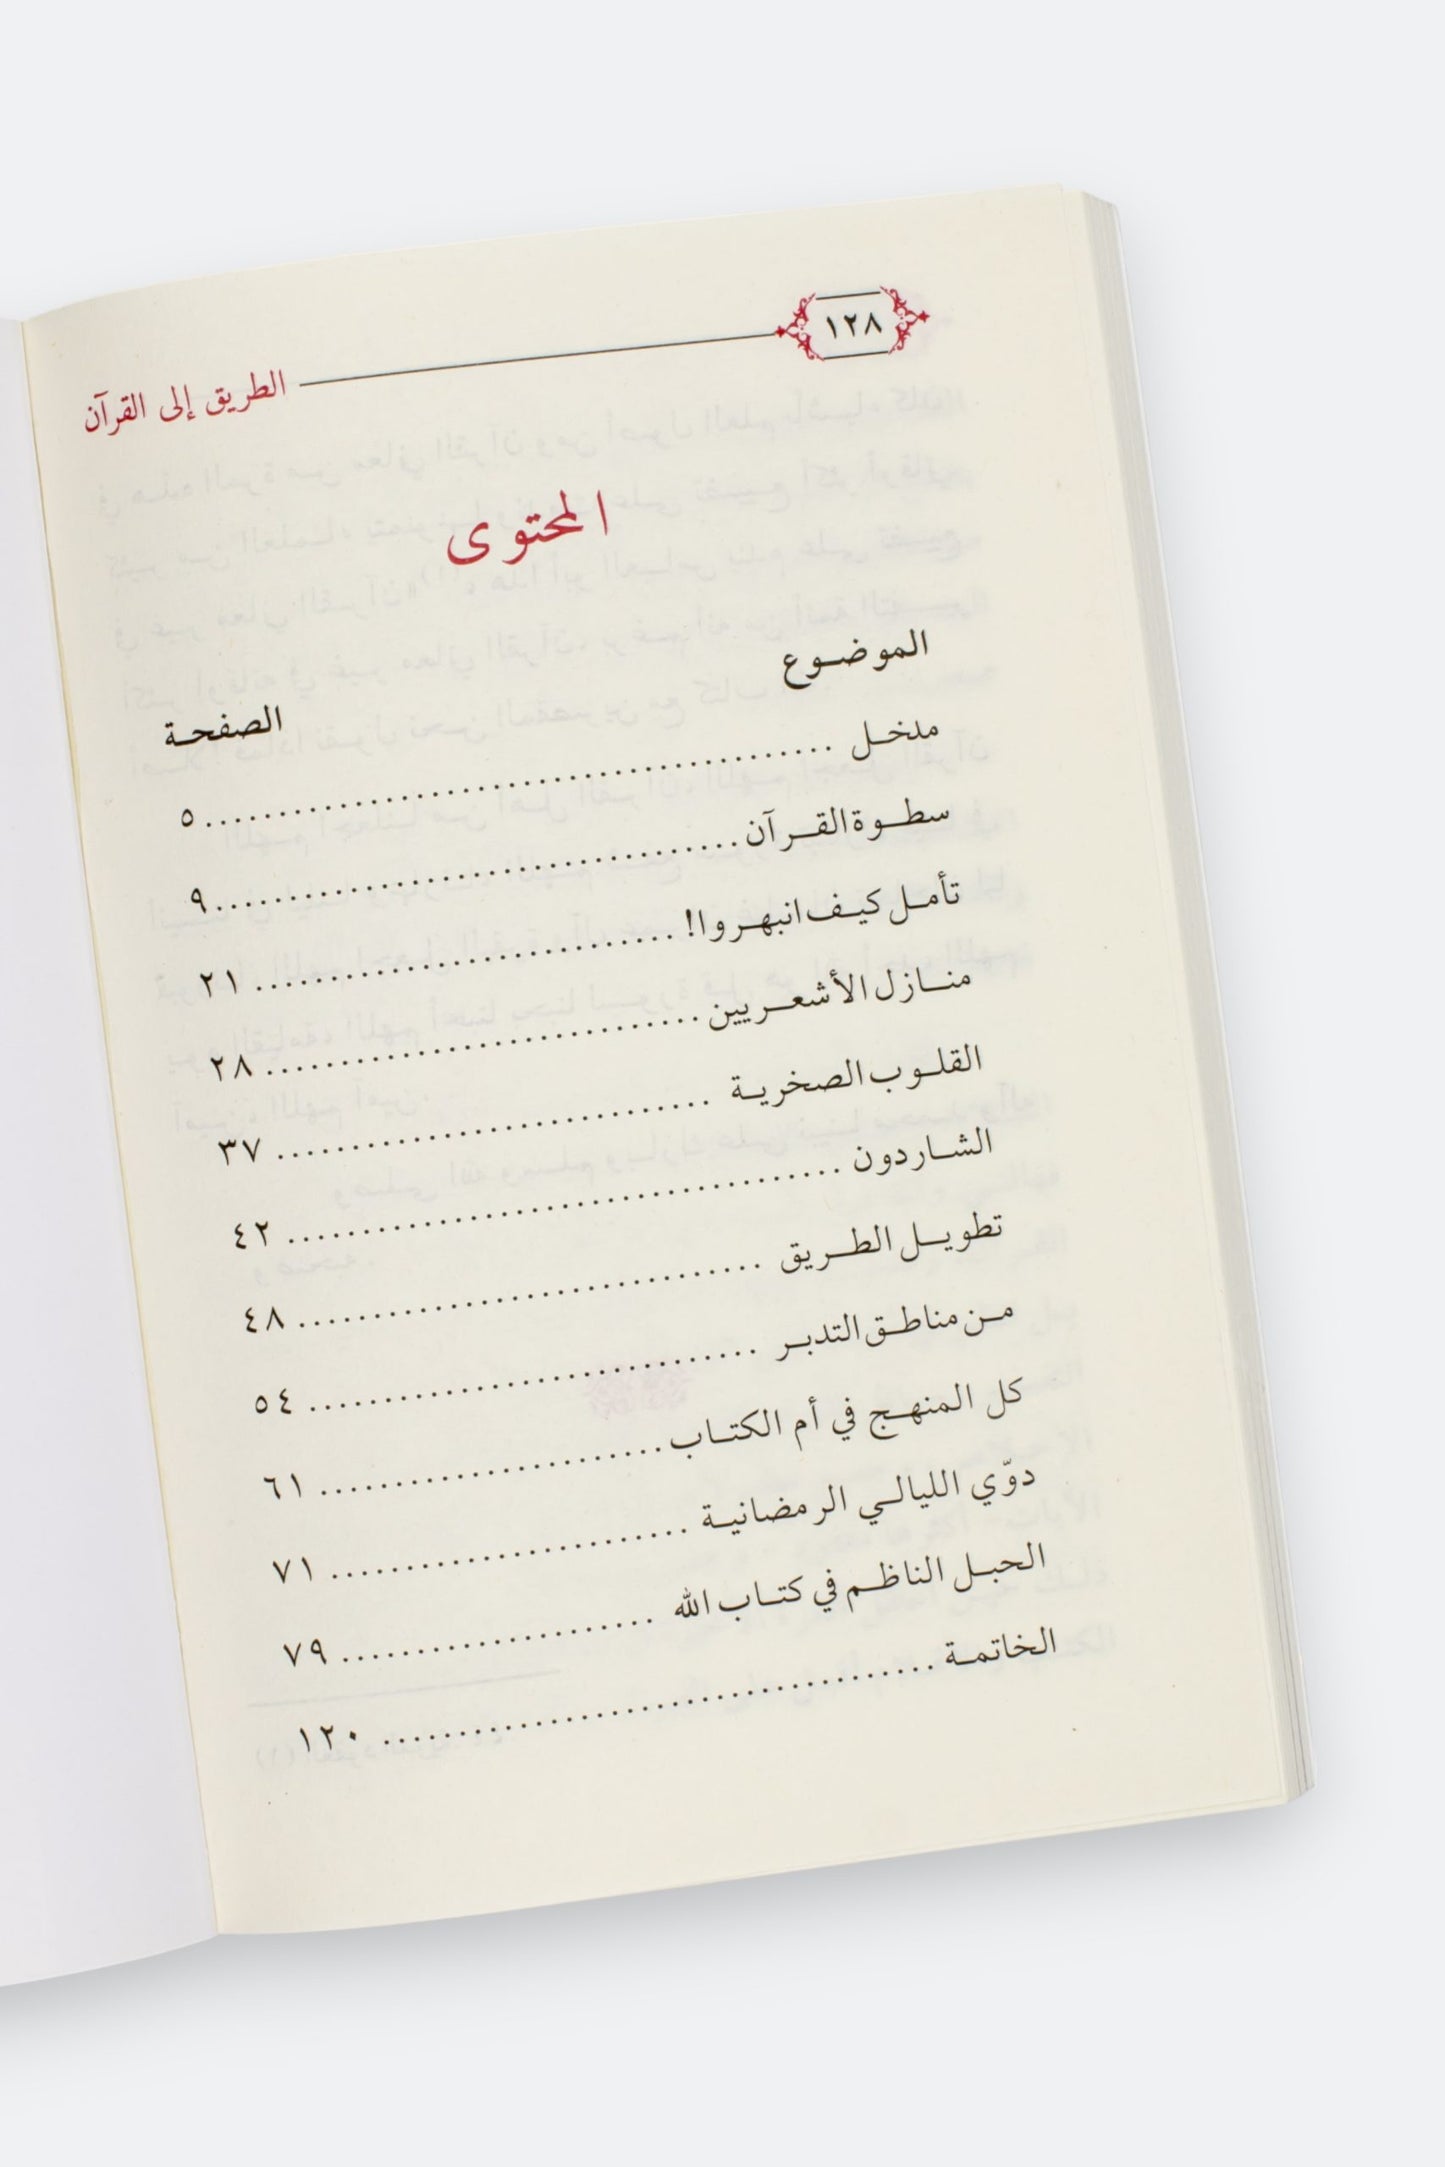 ١٢٨
الطريق إلى القرآن
المحتوى
الموضوع الصفحة
مدخل ........................................ ٥
سطوة القرآن ................................... ٩
تأمل كيف انبهروا! ............................ ٢١
منازل الأشعريين ............................. ٢٨
القلوب الصخرية ............................. ٣٧
الشاردون .................................... ٤٢
تطويل الطريق ............................... ٤٨
من مناطق التدبر ............................. ٥٤
كل المنهج في أم الكتاب ....................... ٦١
دوّي الليالي الرمضانية ........................ ٧١
الحبل الناظم في كتاب الله ..................... ٧٩
الخاتمة ..................................... ١٢٠